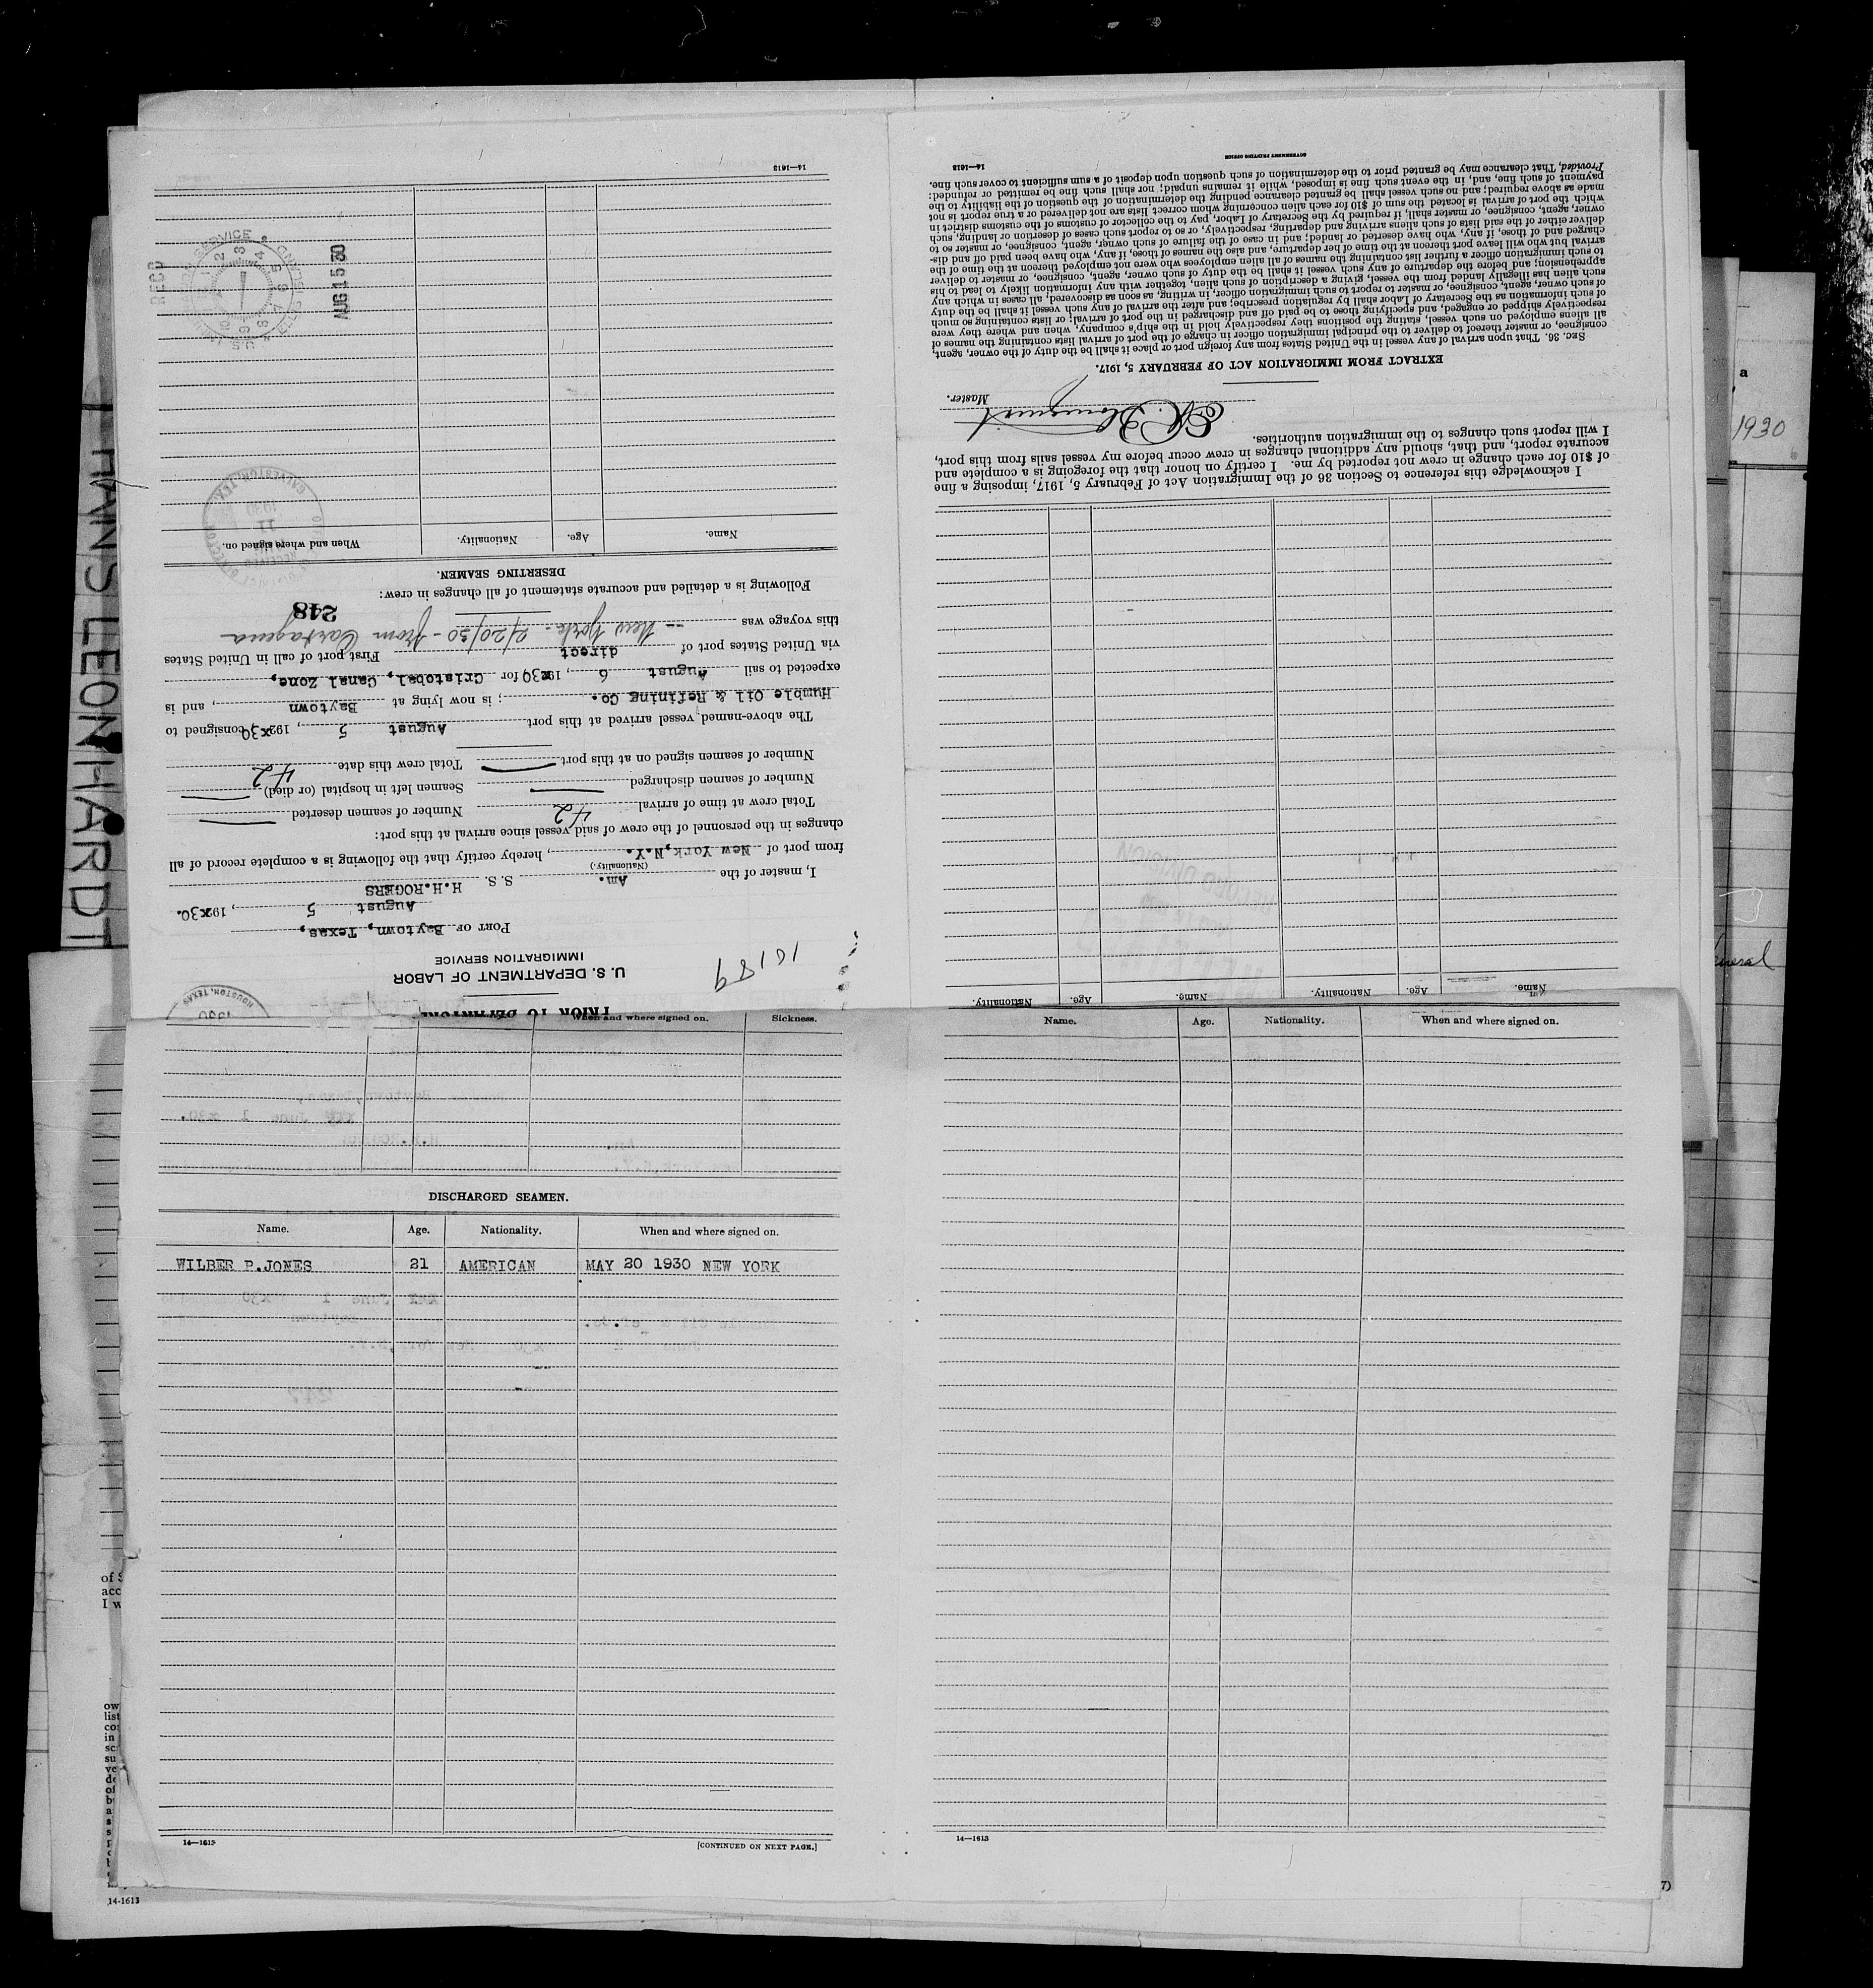 HANS LEONHARDT
PRIOR TO DEPARTURE
U. S. DEPARTMENT OF LABOR
IMMIGRATION SERVICE
16189
PORT OF Baytown, Texas,
August 5, 192x30.
I, master of the Am. S. S. H.H.ROGERS
(Nationality.)
from port of New York,N.Y., hereby certify that the following is a complete record of all
changes in the personnel of the crew of said vessel since arrival at this port:
Total crew at time of arrival 42 Number of seamen deserted —
Number of seamen discharged — Seamen left in hospital (or died) —
Number of seamen signed on at this port — Total crew this date 42
The above-named vessel arrived at this port August 5, 192x30 consigned to
Humble Oil & Refining Co. ; is now lying at Baytown, and is
expected to sail August 6, 192x30 for Cristobal, Canal Zone,
via United States port of direct First port of call in United States
this voyage was — New York - 2/20/30 - from Cartagena
248
Following is a detailed and accurate statement of all changes in crew:
DESERTING SEAMEN.
Name. Age. Nationality. When and where signed on.
GALVESTON, TEX.
RECEIVED
11
1930
REC'D
AUG 15 30
14—1613
Name. Age. Nationality. Name. Age. Nationality.
I acknowledge this reference to Section 36 of the Immigration Act of February 5, 1917, imposing a fine
of $10 for each change in crew not reported by me. I certify on honor that the foregoing is a complete and
accurate report, and that, should any additional changes in crew occur before my vessel sails from this port,
I will report such changes to the immigration authorities.
Master.
EXTRACT FROM IMMIGRATION ACT OF FEBRUARY 5, 1917.
SEC. 36. That upon arrival of any vessel in the United States from any foreign port or place it shall be the duty of the owner, agent,
consignee, or master thereof to deliver to the principal immigration officer in charge of the port of arrival lists containing the names of
all aliens employed on such vessel, stating the positions they respectively hold in the ship's company, when and where they were
respectively shipped or engaged, and specifying those to be paid off and discharged in the port of arrival; or lists containing so much
of such information as the Secretary of Labor shall by regulation prescribe; and after the arrival of any such vessel it shall be the duty
of such owner, agent, consignee, or master to report to such immigration officer, in writing, as soon as discovered, all cases in which any
such alien has illegally landed from the vessel, giving a description of such alien, together with any information likely to lead to his
apprehension; and before the departure of any such vessel it shall be the duty of such owner, agent, consignee, or master to deliver
to such immigration officer a further list containing the names of all alien employees who were not employed thereon at the time of the
arrival but who will leave port thereon at the time of her departure, and also the names of those, if any, who have been paid off and dis-
charged and of those, if any, who have deserted or landed; and in case of the failure of such owner, agent, consignee, or master so to
deliver either of the said lists of such aliens arriving and departing, respectively, or so to report such cases of desertion or landing, such
owner, agent, consignee, or master shall, if required by the Secretary of Labor, pay to the collector of customs of the customs district in
which the port of arrival is located the sum of $10 for each alien concerning whom correct lists are not delivered or a true report is not
made as above required; and no such vessel shall be granted clearance pending the determination of the question of the liability to the
payment of such fine, and, in the event such fine is imposed, while it remains unpaid; nor shall such fine be remitted or refunded:
Provided, That clearance may be granted prior to the determination of such question upon deposit of a sum sufficient to cover such fine.
14—1613 GOVERNMENT PRINTING OFFICE
HOUSTON, TEXAS
1930
When and where signed on. Sickness.
DISCHARGED SEAMEN.
Name. Age. Nationality. When and where signed on.
WILBER P.JONES 21 AMERICAN MAY 20 1930 NEW YORK
14—1613 [CONTINUED ON NEXT PAGE.]
Name. Age. Nationality. When and where signed on.
14—1613
14-1613
a
1930